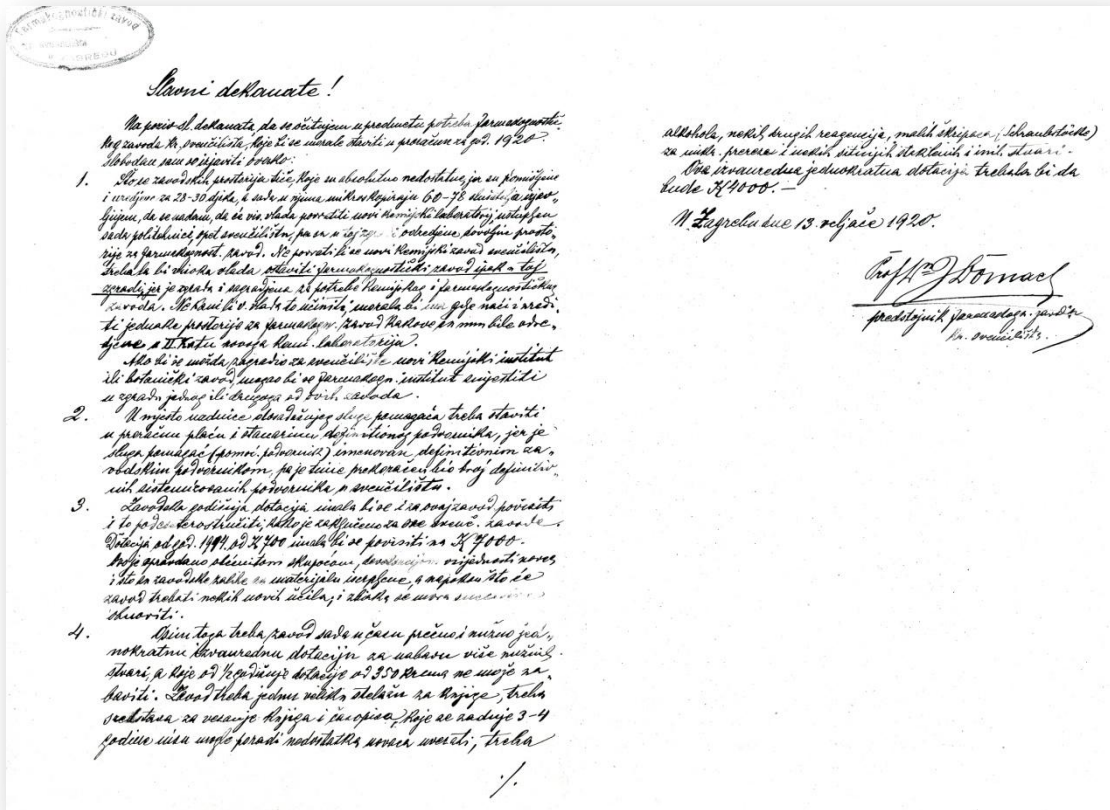 Farmakognostički zavod
Slavni dekanate!
Na poziv sl. dekanata, da se očitujem u predmetu potreba farmakognostič-
kog zavoda kr. sveučilišta, koje bi se morale staviti u proračun za god. 1920.
slobodan sam se izjaviti ovako:
1. Što se zavodskih prostorija tiče, koje su absolutno nedostatne, jer su pomišljene
i uredjene za 28-30 djaka, a sada u njima mikroskopiraju 60-78 slušatelja izjav-
ljujem, da se nadam, da će vis. vlada povratiti novi kemijski laboratorij ustupljen
sada politehnici, opet sveučilištu, pa se u toj i odredjene dovoljne prosto-
rije za farmakognost. zavod. Ne povrati li se novi kemijski zavod sveučilištu,
trebala bi visoka vlada ostaviti farmakognostički zavod ipak u toj
zgradi, jer je zgrada i sagradjena za potrebe kemijskog i farmakognostičkog
zavoda. Ne kani li v. vlada to učiniti, morala bi mu gdje naći i uredi-
ti jednake prostorije za farmakogn. zavod kakove su mu bile odre-
djene u II. katu novoga kem. laboratorija.
Ako bi se možda zagradio za sveučilište novi kemijski institut
ili botanički zavod, mogao bi se farmakogn. institut smjestiti
u zgradu jednog ili drugoga od ovih zavoda.
2. Umjesto nadnice dosadašnjeg sluge pomagača treba staviti
u proračun plaću i stanarinu definitivnog podvornika, jer je
sluga pomagač (pomoć. podvornik) imenovan definitivnim za-
vodskim podvornikom, pa je time prekoračen bio broj definitiv-
nih sistemizovanih podvornika na sveučilištu.
3. Zavodska godišnja dotacija imala bi se i za ovaj zavod povisiti
i to podeseterostručiti, kako je zaključeno za sve sveuč. zavode.
Dotacija od god. 1914. od K 700 imala bi se povisiti na K 7000.
Ovo je opravdano očevitom skupoćom, vrijednosti novca
i što su zavodske zalihe na materijalu iscrpljene, a napokon što će
zavod trebati nekih novih učila, i zbirka se mora
obnoviti.
4. Osim toga treba zavod sada u času prečno i nužno jed-
nokratnu izvanrednu dotaciju za nabavu više nužnih
stvari, a koje od ½ godišnje dotacije od 350 kruna ne može na-
baviti. Zavod treba jednu veliku stelažu za knjige, treba
sredstava za vezanje knjiga i časopisa, koje se zadnje 3-4
godine nisu mogle poradi nedostatka novca uvezati, treba
./.
alkohola, nekih drugih reagencija, malih škripaca (Schraubstöcke)
za mikr. prereze i nekih sitnijih staklenih i inih stvari.
Ova izvanredna jednokratna dotacija trebala bi da
bude K 4000.-
U Zagrebu dne 13. veljače 1920.
Prof. Dr J Domac
predstojnik farmakogn. zavoda
kr. sveučilišta.